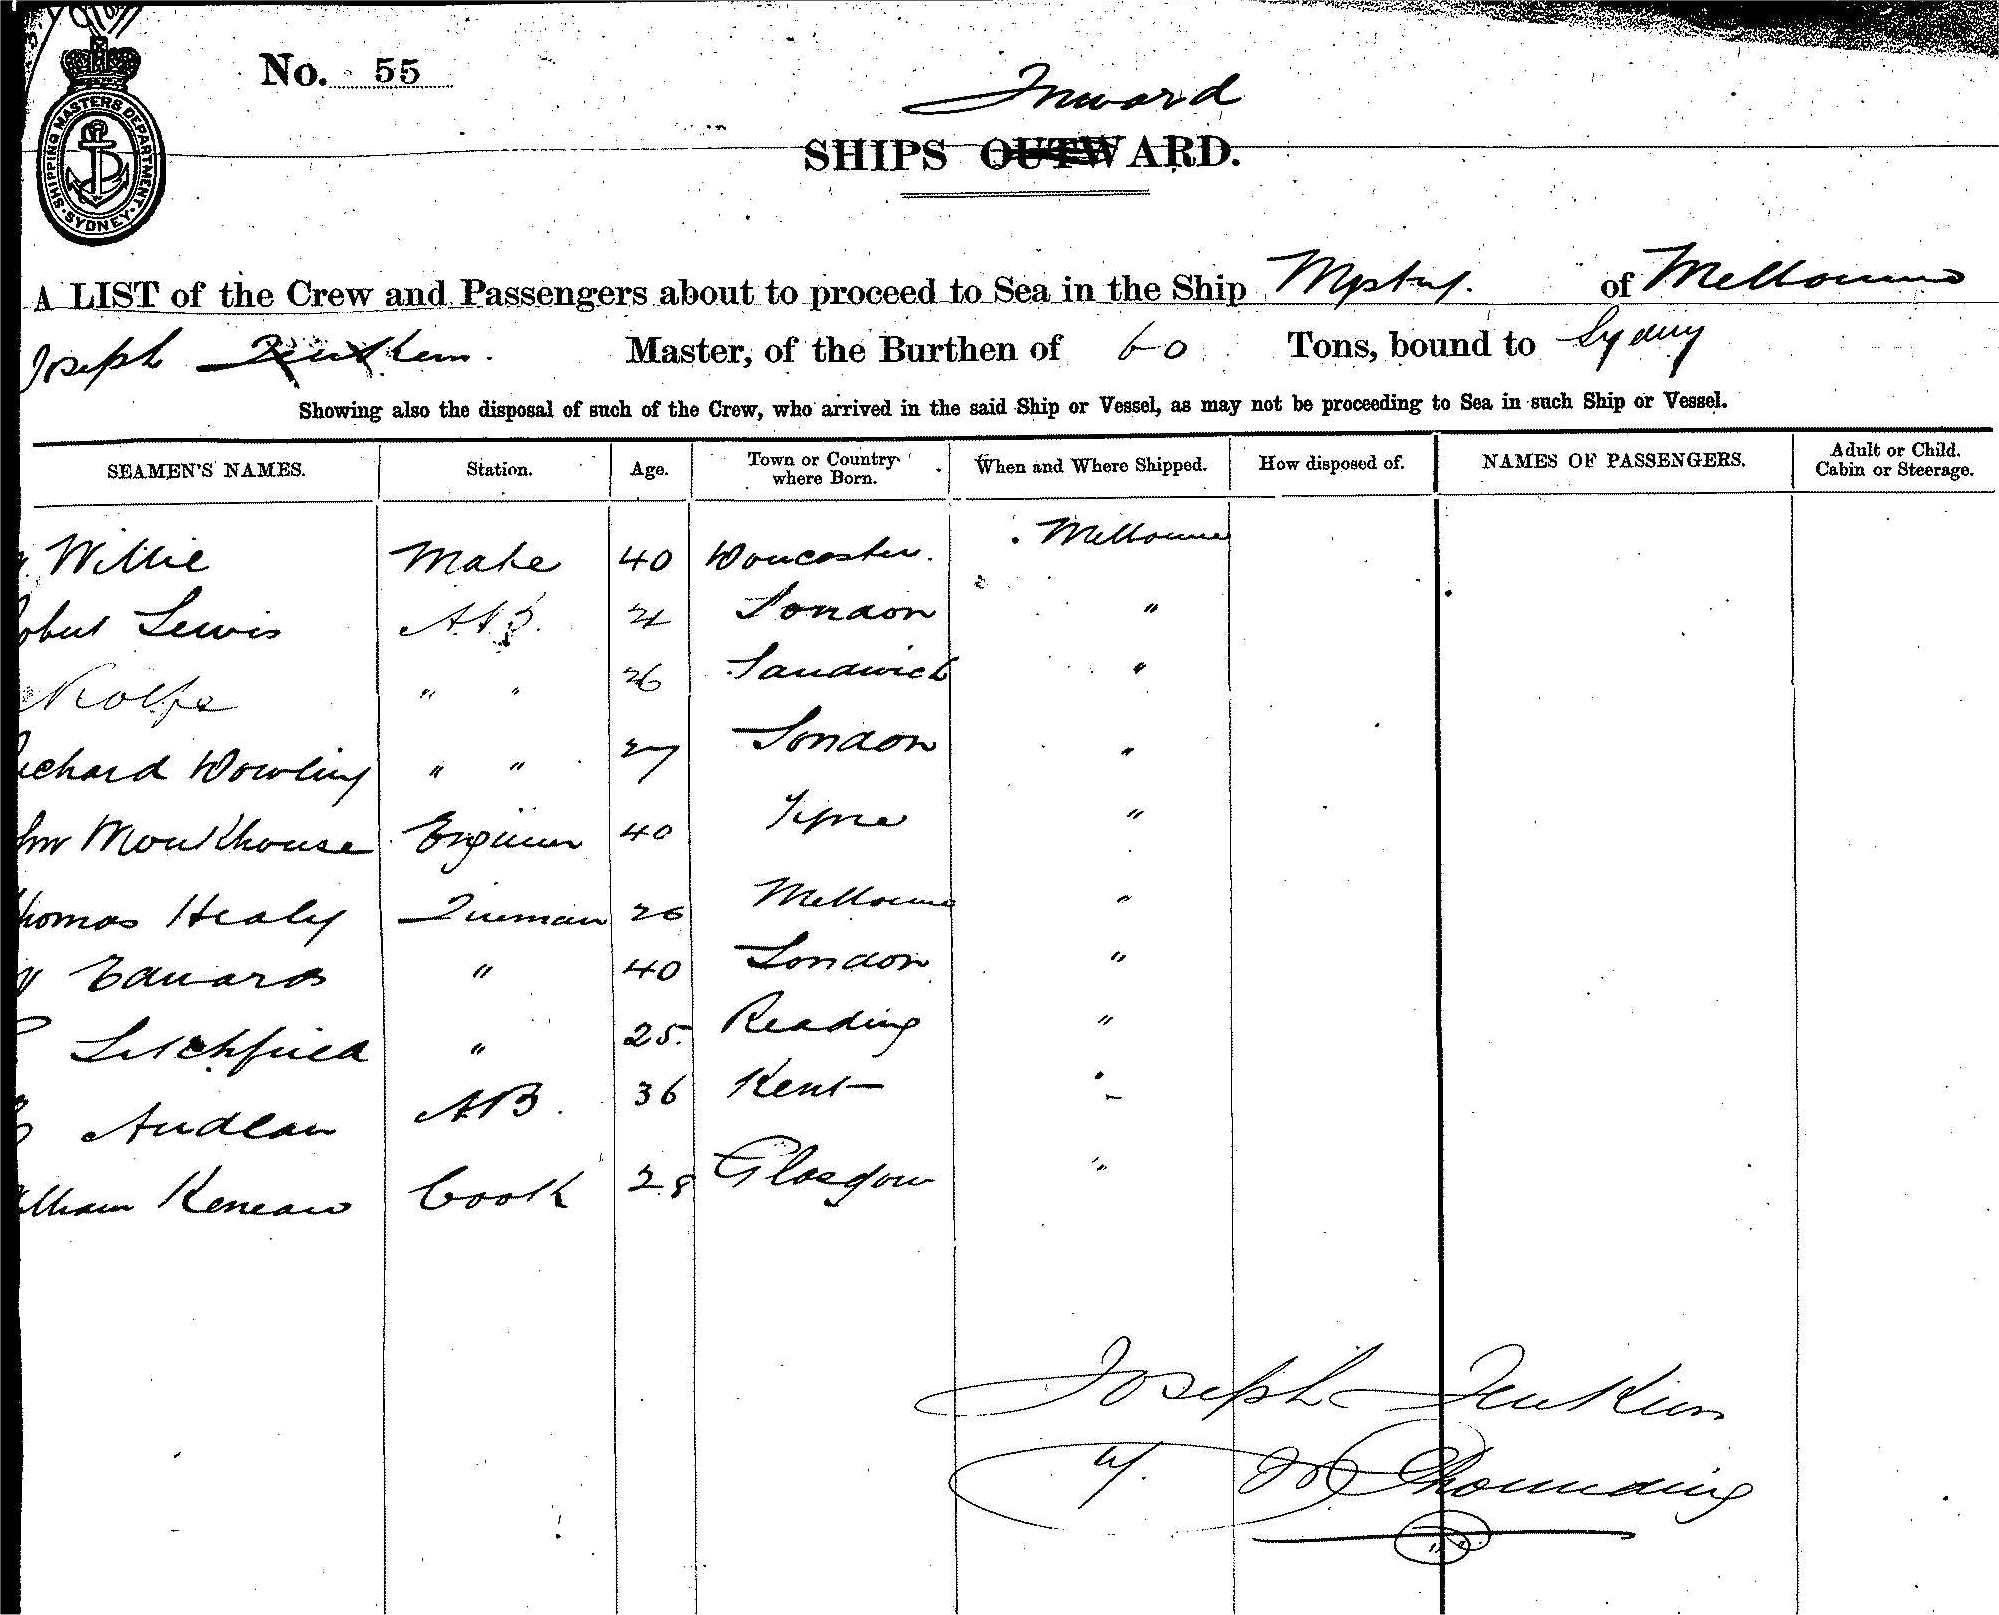 No. 55
SHIPPING MASTERS DEPARTMENT SYDNEY
Inward
SHIPS OUTWARD.
A LIST of the Crew and Passengers about to proceed to Sea in the Ship of Melbourne
Joseph Master, of the Burthen of 60 Tons, bound to Sydney
Showing also the disposal of such of the Crew, who arrived in the said Ship or Vessel, as may not be proceeding to Sea in such Ship or Vessel.
SEAMEN'S NAMES. Station. Age. Town or Country where Born. When and Where Shipped. How disposed of. NAMES OF PASSENGERS. Adult or Child. Cabin or Steerage.
Willie Mate 40 Worcester. Melbourne
obert Lewis A.B. London "
Rolfe " " 26 Sandwich "
ichard Dowling " " 27 London "
Monkhouse Engineer 40 Tyne "
homas Healy Fireman 26 Melbourne "
Edwards " 40 London "
Litchfield " 25. Reading "
AB. 36 Kent "
illiam Cook 28 Glasgow "
Joseph Jenkins